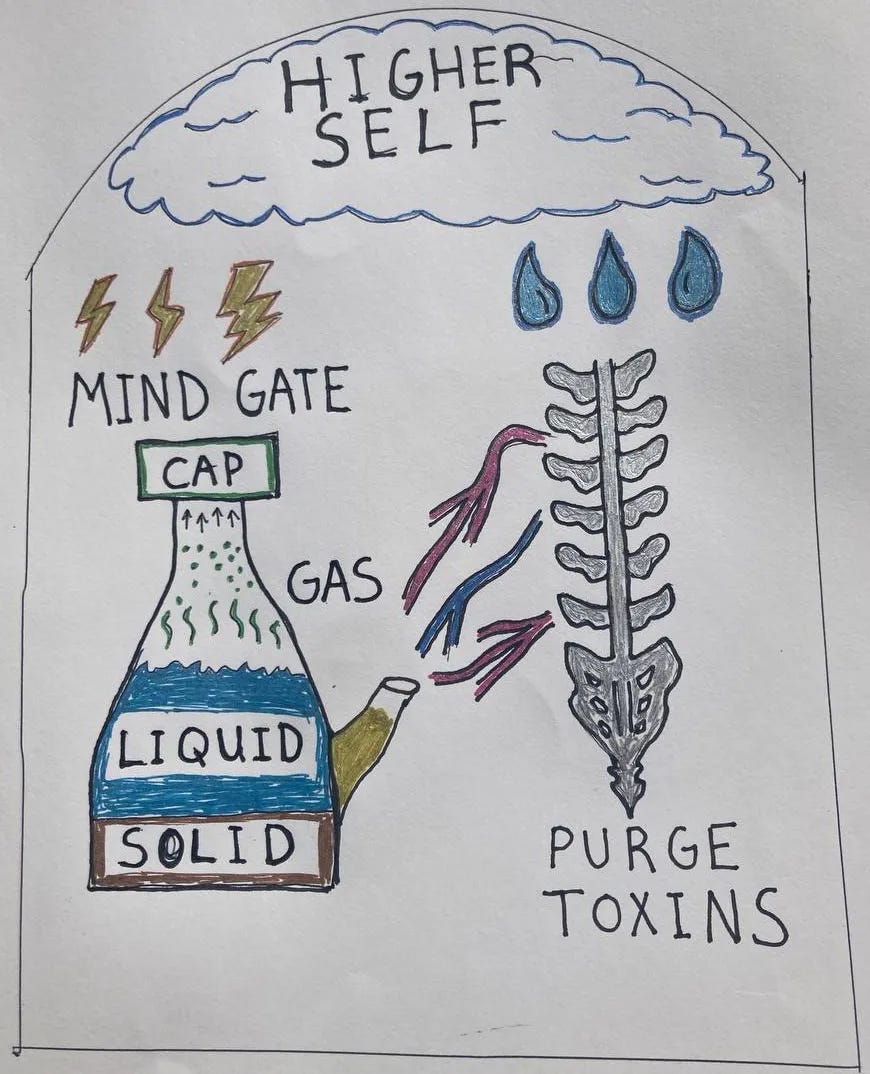 HIGHER
SELF
MIND GATE
CAP
GAS
LIQUID
SOLID
PURGE
TOXINS